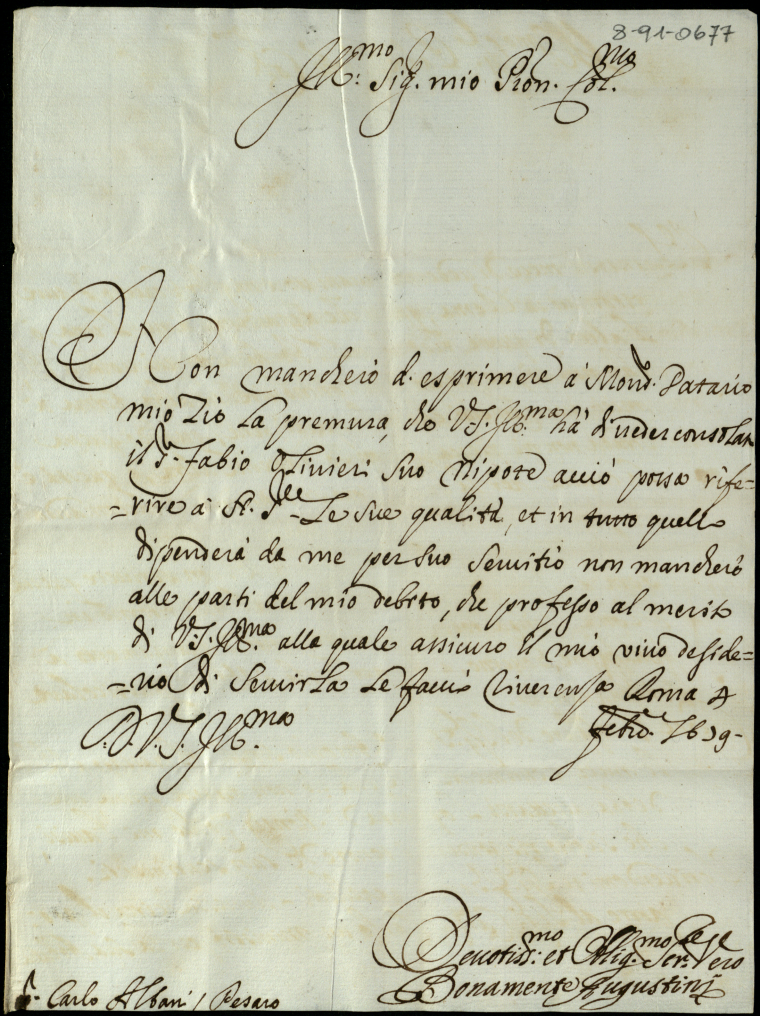 8-91-0677
Ill.mo Sig. mio Pron. Col.mo
Non mancherò d. esprimere à Mons.r Datario
mio Zio la premura, che V.S. Ill.ma hà di veder consolato
il S.r Fabio Olivieri suo Nipote acciò possa rife=
=rire à le sue qualità, et in tutto quello
dipenderà da me per suo servitio non mancherò
alle parti del mio debito, che professo al merito
di V.S. Ill.ma alla quale assicuro il mio vivo deside=
=rio di servirla le faccio riverenza Roma 4
Febro.
D. V. S. Ill.ma
Devotiss.mo et Oblig.mo Ser.re Vero
Bonamente Augustini
S.r Carlo Albani / Pesaro